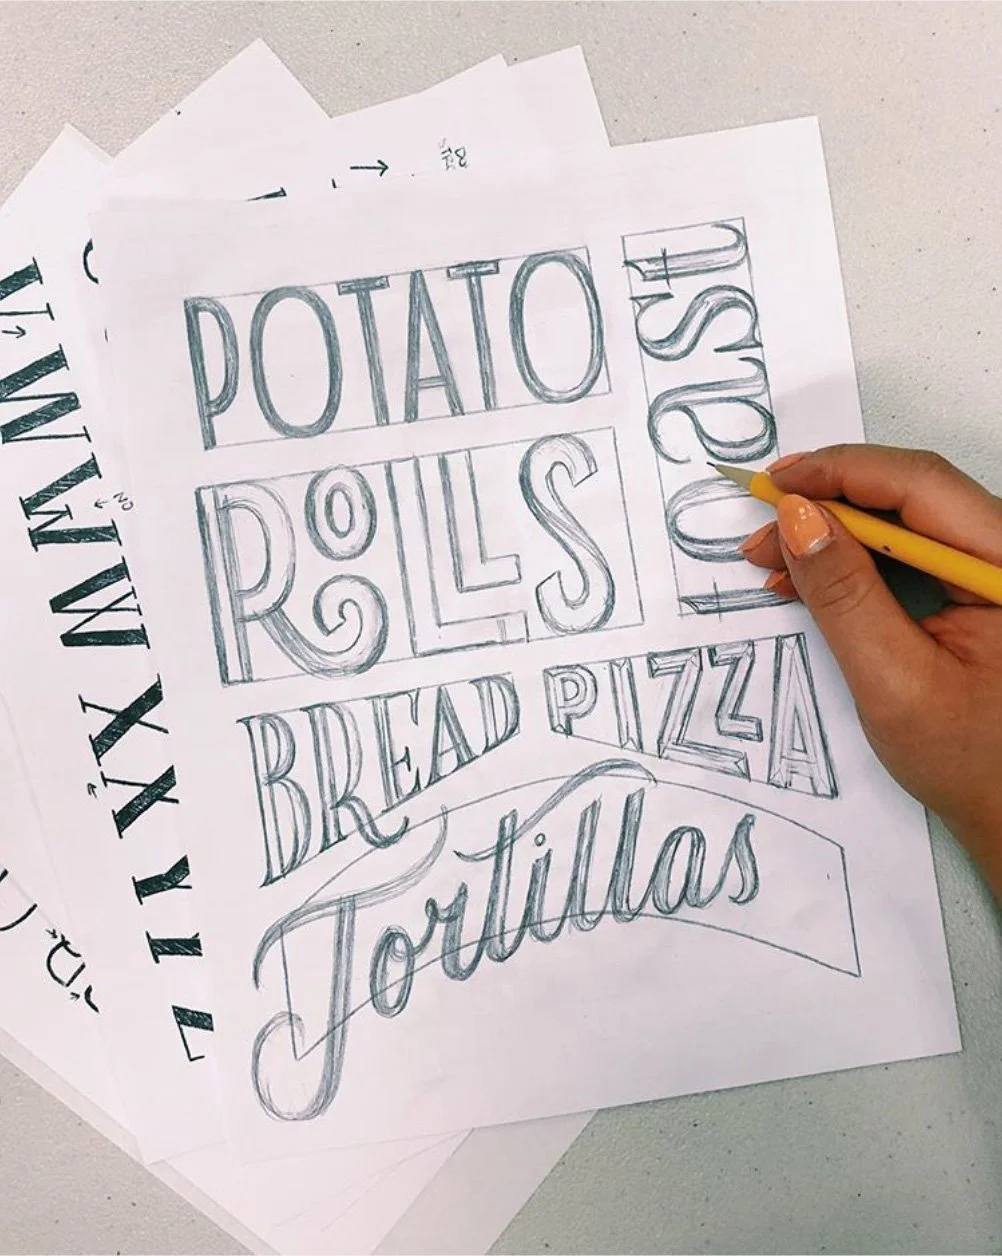 POTATO
ROLLS
toast
BREAD PIZZA
Tortillas
V W W M M X X Y I Z